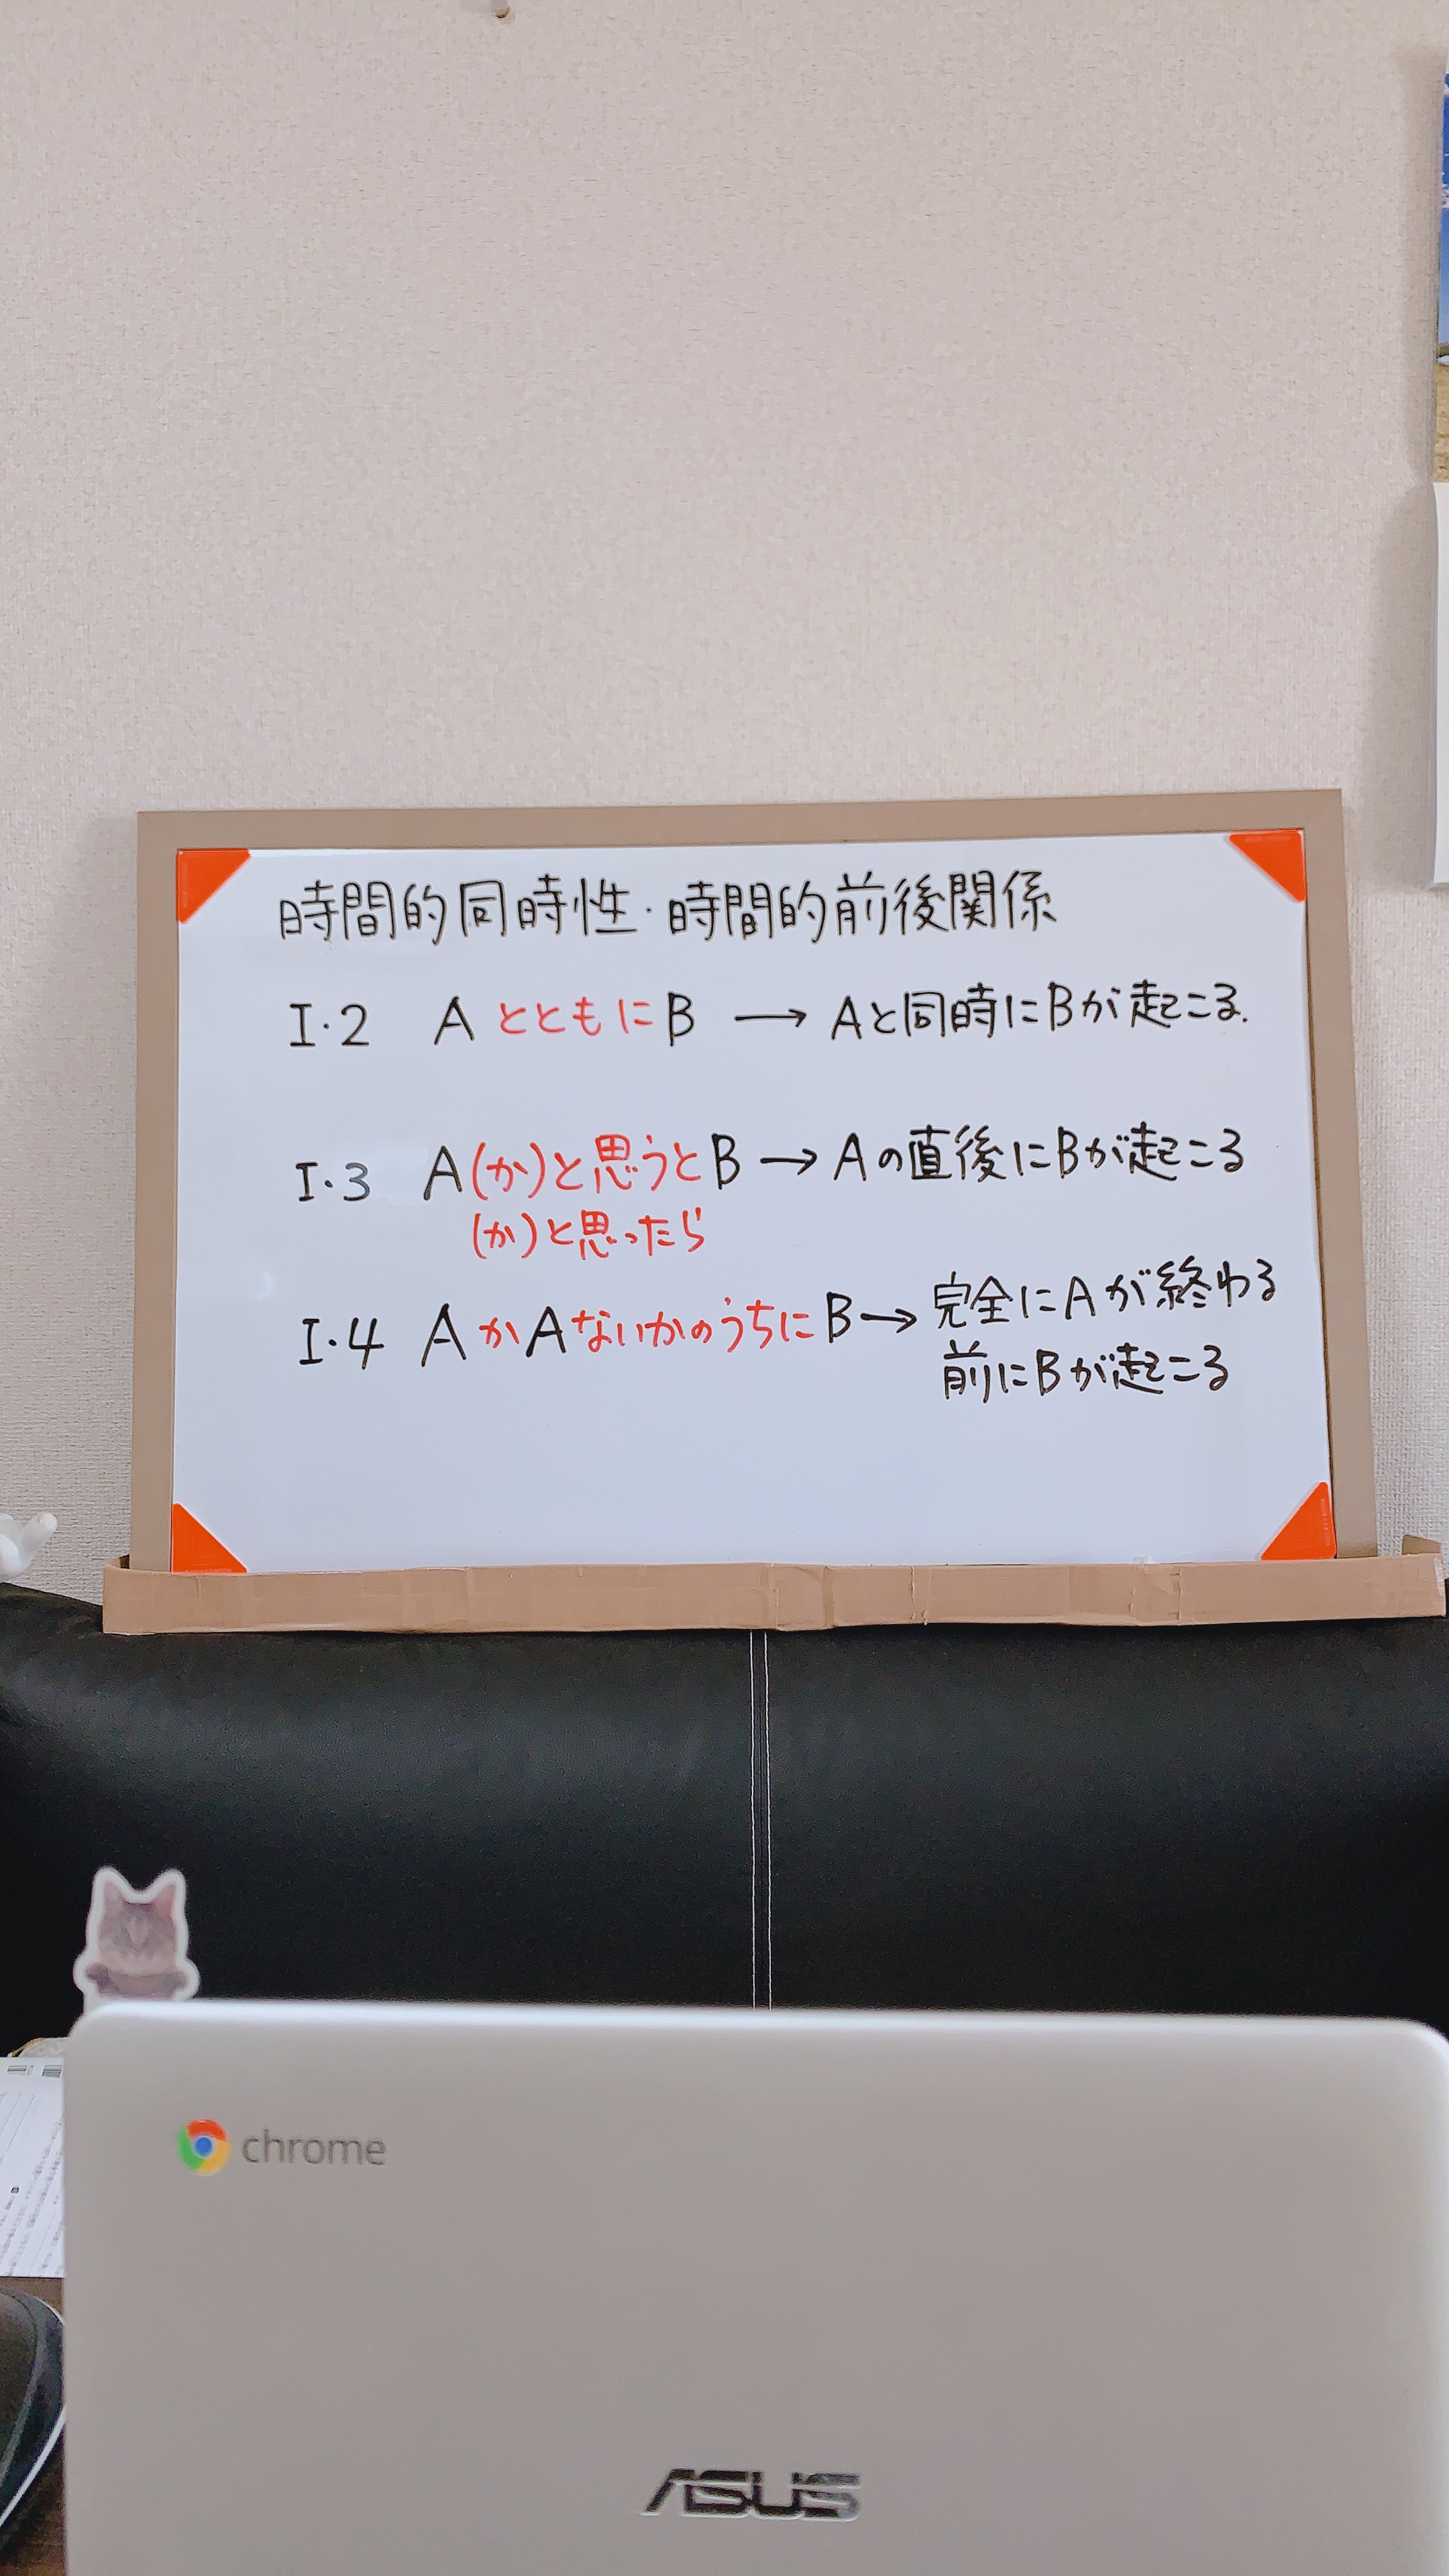 時間的同時性・時間的前後関係
I・2 AとともにB → Aと同時にBが起こる.
I・3 A(か)と思うとB → Aの直後にBが起こる
(か)と思ったら
I・4 AかAないかのうちにB→ 完全にAが終わる
前にBが起こる
chrome
ASUS